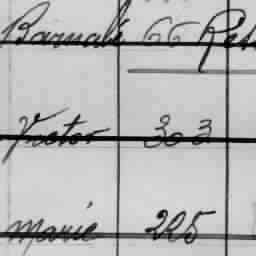 Barnabé 66 Ret
Victor 303
Marie 225